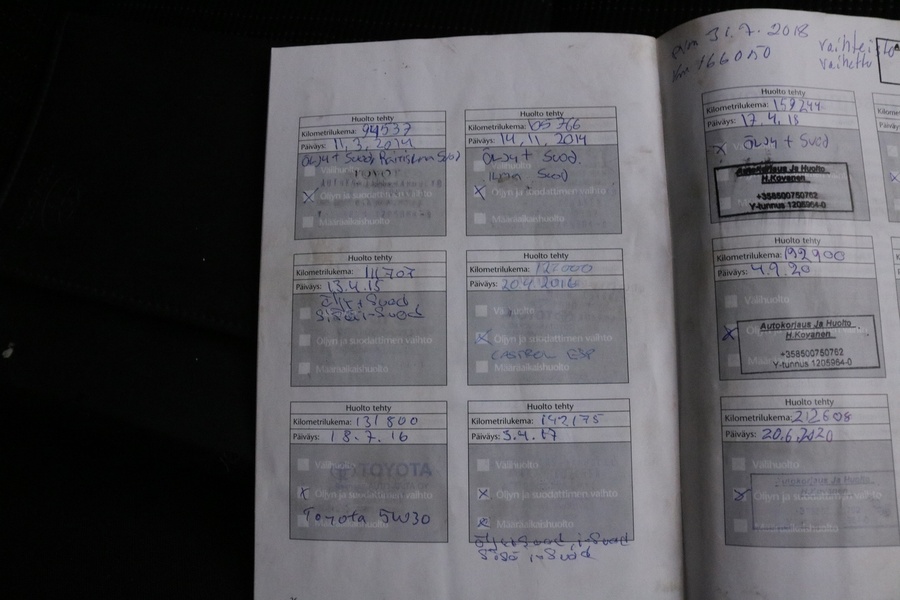 pvm 31.7.2018
km 166050
vaihteisto
vaihettu
Huolto tehty
Kilometrilukema: 94537
Päiväys: 11,3,2014
Öljy + Suod, Raitisilm Suod
Välihuolto
Öljyn ja suodattimen vaihto
Määräaikaishuolto
Huolto tehty
Kilometrilukema: 105766
Päiväys: 14,11,2014
Öljy + Suod
Ilman Suod
Öljyn ja suodattimen vaihto
Määräaikaishuolto
Huolto tehty
Kilometrilukema: 111707
Päiväys: 13.4.15
Öljy + Suod
Sisäi-Suod
Öljyn ja suodattimen vaihto
Määräaikaishuolto
Huolto tehty
Kilometrilukema: 127000
Päiväys: 20.4.2016
Välihuolto
Öljyn ja suodattimen vaihto
CASTROL ESP
Määräaikaishuolto
Huolto tehty
Kilometrilukema: 131800
Päiväys: 18.7.16
Välihuolto
TOYOTA
Öljyn ja suodattimen vaihto
Toyota 5W30
Määräaikaishuolto
Huolto tehty
Kilometrilukema: 142175
Päiväys: 3.4.17
Välihuolto
Öljyn ja suodattimen vaihto
Määräaikaishuolto
Öljy+Suod, i-Suod
Sisä i-Suod
Huolto tehty
Kilometrilukema: 159244
Päiväys: 17.4.18
Öljy + Suod
Autokorjaus Ja Huolto
H.Kovanen
+358500750762
Y-tunnus 1205964-0
Huolto tehty
Kilometrilukema: 192900
Päiväys: 4.9.20
Välihuolto
Autokorjaus Ja Huolto
H.Kovanen
+358500750762
Y-tunnus 1205964-0
Huolto tehty
Kilometrilukema: 212608
Päiväys: 20.6.2020
Välihuolto
Autokorjaus Ja Huolto
H.Kovanen
Öljyn ja suodattimen vaihto
Määräaikaishuolto